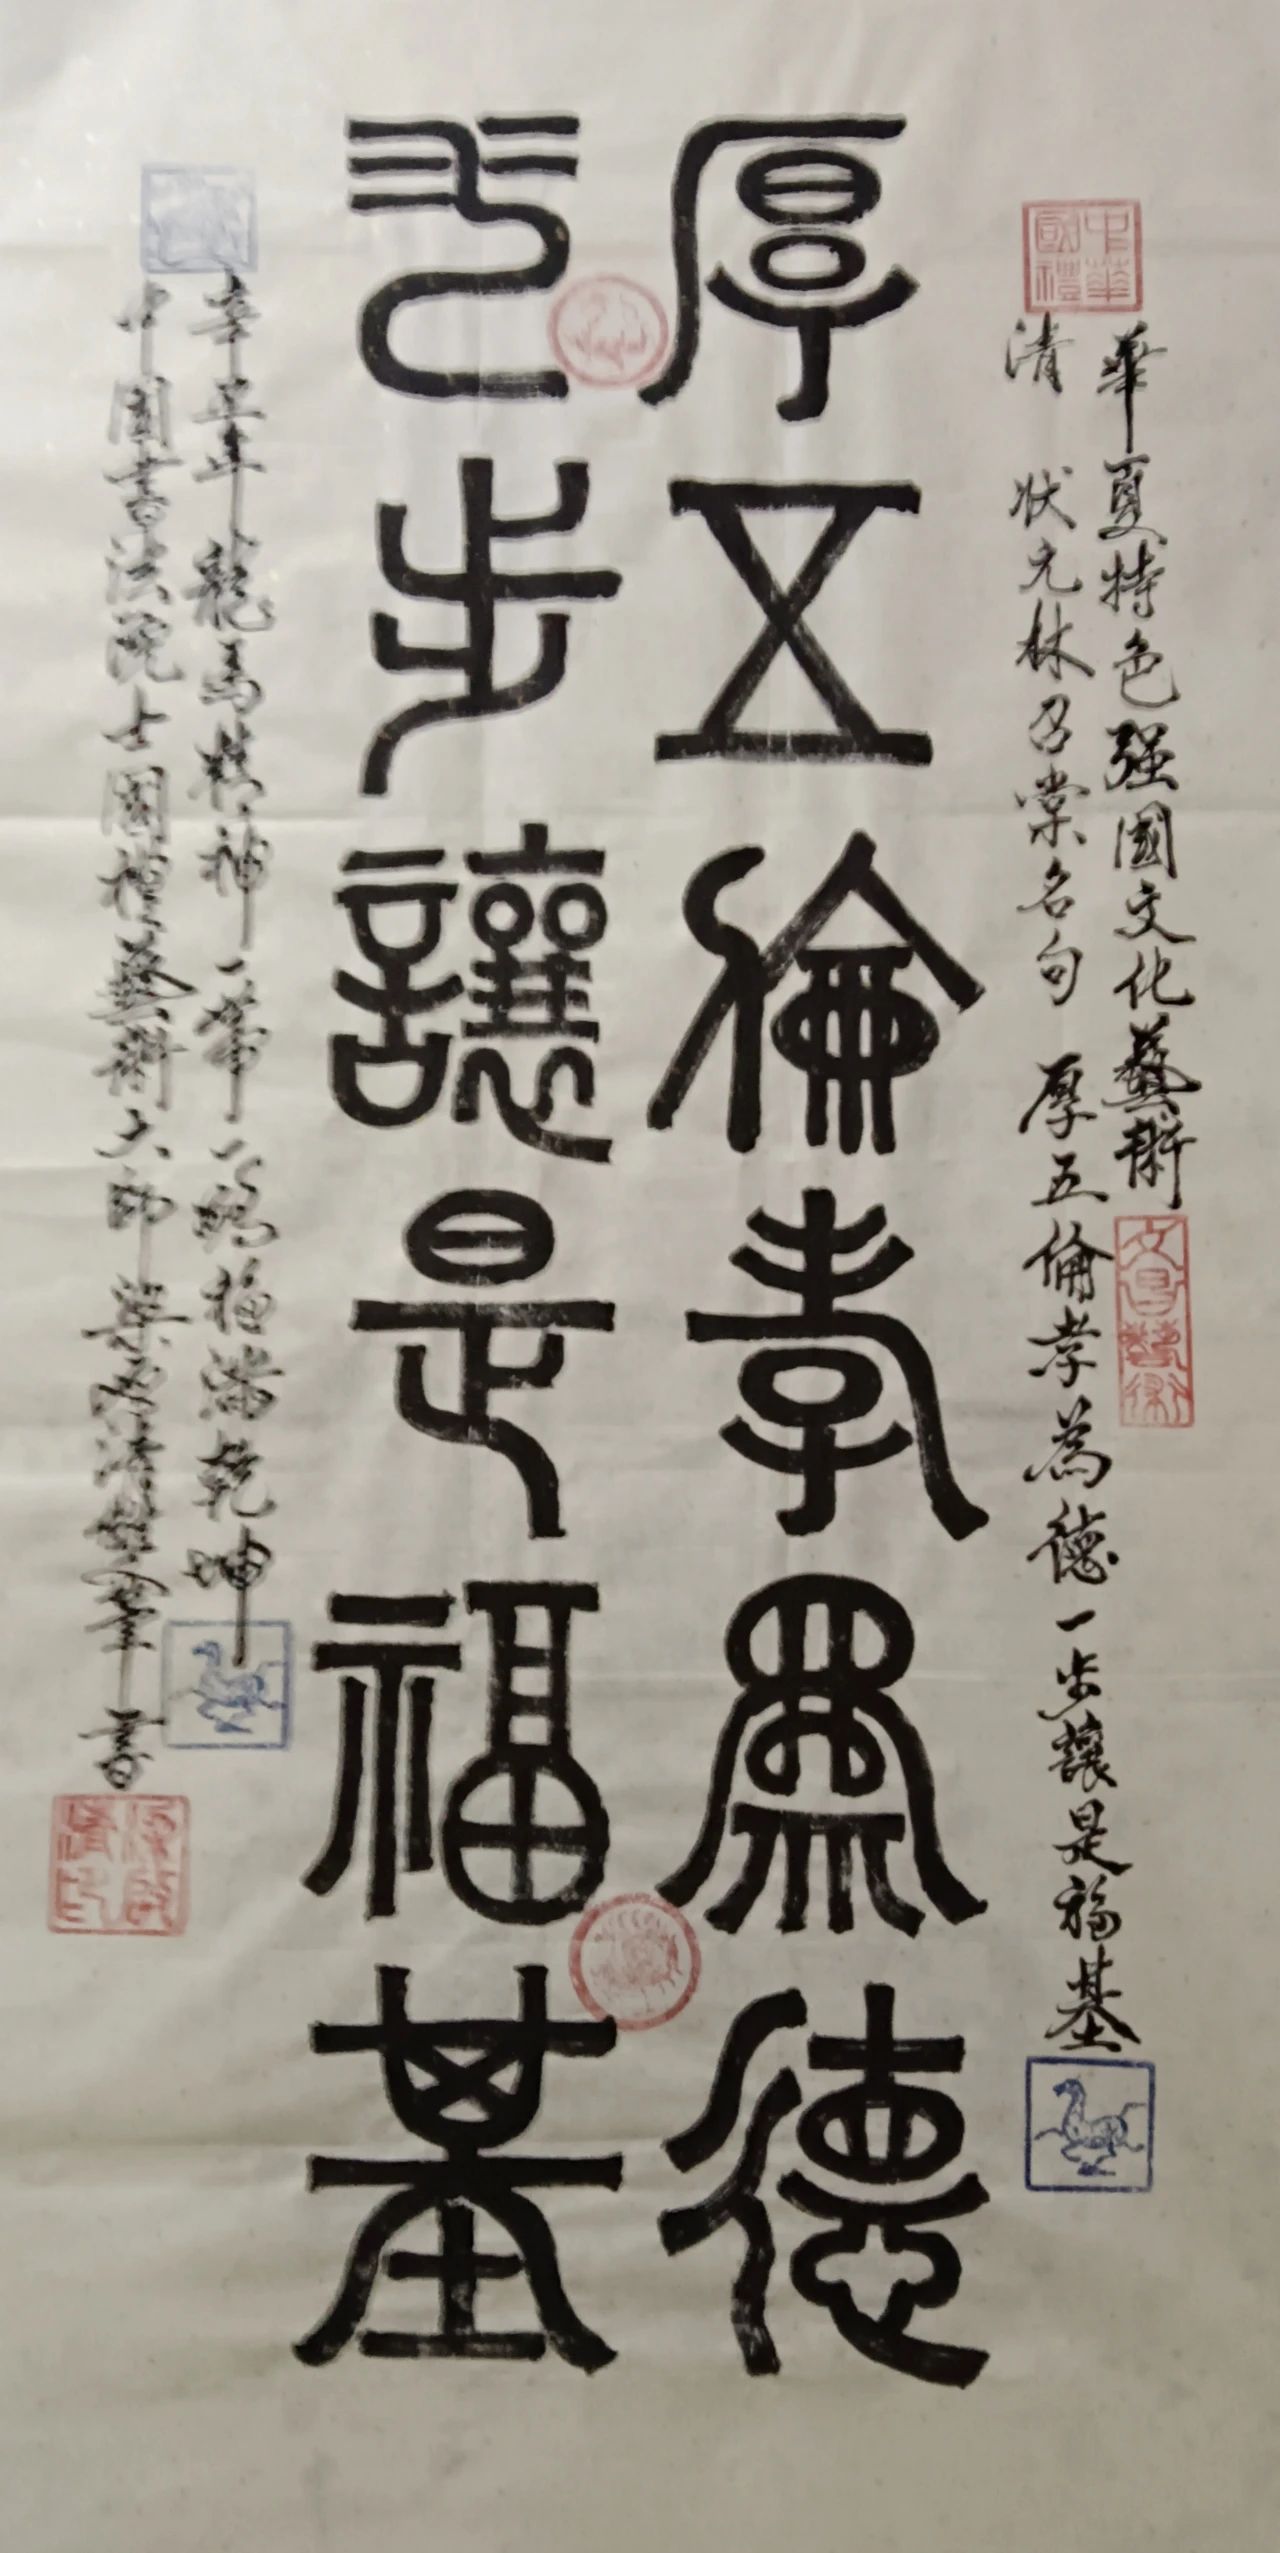 中華國禮
華夏特色强國文化藝術
文昌藝術
清 狀元林召棠名句 厚五倫孝為德一步讓是福基
厚五倫孝為德
弌步讓是福基
辛丑年龍馬精神一帶一路福滿乾坤
中國書法院士國禮藝術大師梁
書